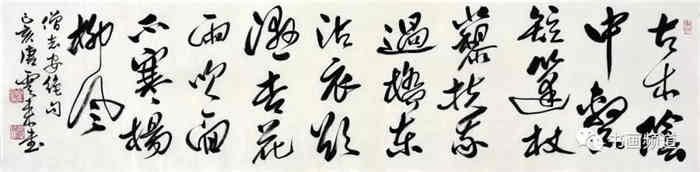 古木陰
中繫
短篷杖
藜扶我
過橋東
沾衣欲
濕杏花
雨吹面
不寒楊
柳風
僧志安絕句
己亥唐雲來書
书画频道